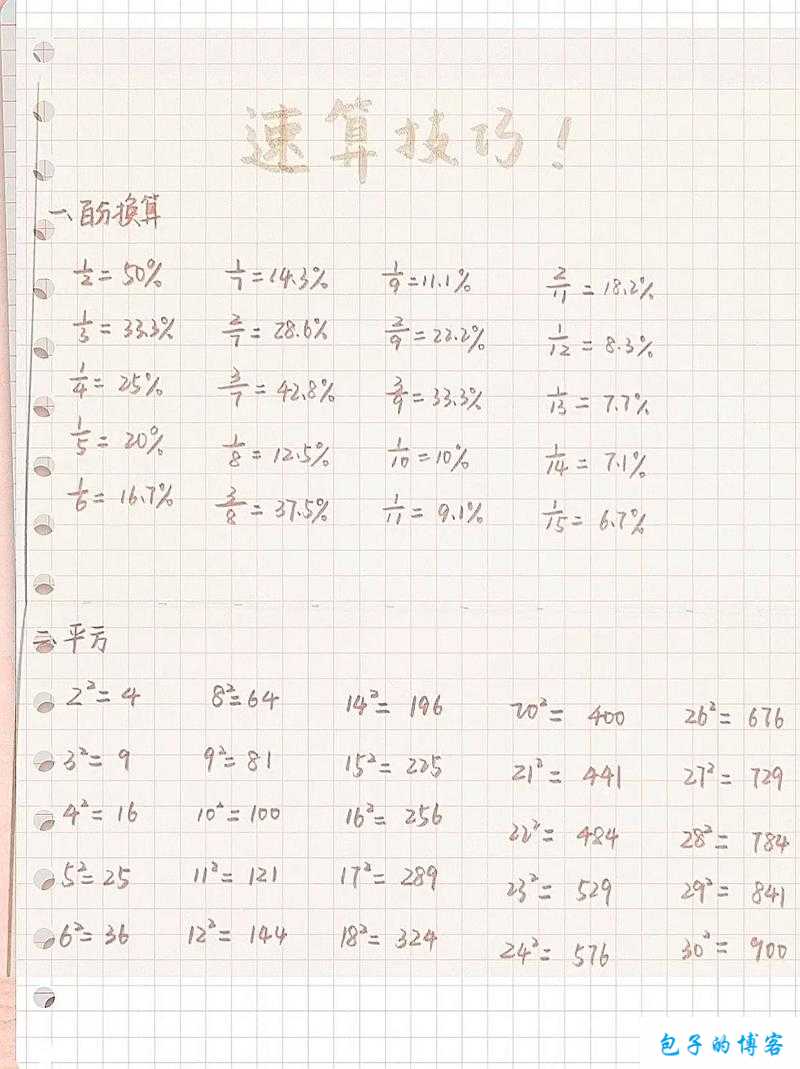 速算技巧!
一、百分换算
1/2 = 50% 1/7 = 14.3% 1/9 = 11.1% 2/11 = 18.2%
1/3 = 33.3% 2/7 = 28.6% 2/9 = 22.2% 1/12 = 8.3%
1/4 = 25% 3/7 = 42.8% 3/9 = 33.3% 1/13 = 7.7%
1/5 = 20% 1/8 = 12.5% 1/10 = 10% 1/14 = 7.1%
1/6 = 16.7% 3/8 = 37.5% 1/11 = 9.1% 1/15 = 6.7%
二、平方
2² = 4 8² = 64 14² = 196 20² = 400 26² = 676
3² = 9 9² = 81 15² = 225 21² = 441 27² = 729
4² = 16 10² = 100 16² = 256 22² = 484 28² = 784
5² = 25 11² = 121 17² = 289 23² = 529 29² = 841
6² = 36 12² = 144 18² = 324 24² = 576 30² = 900
包子的博客